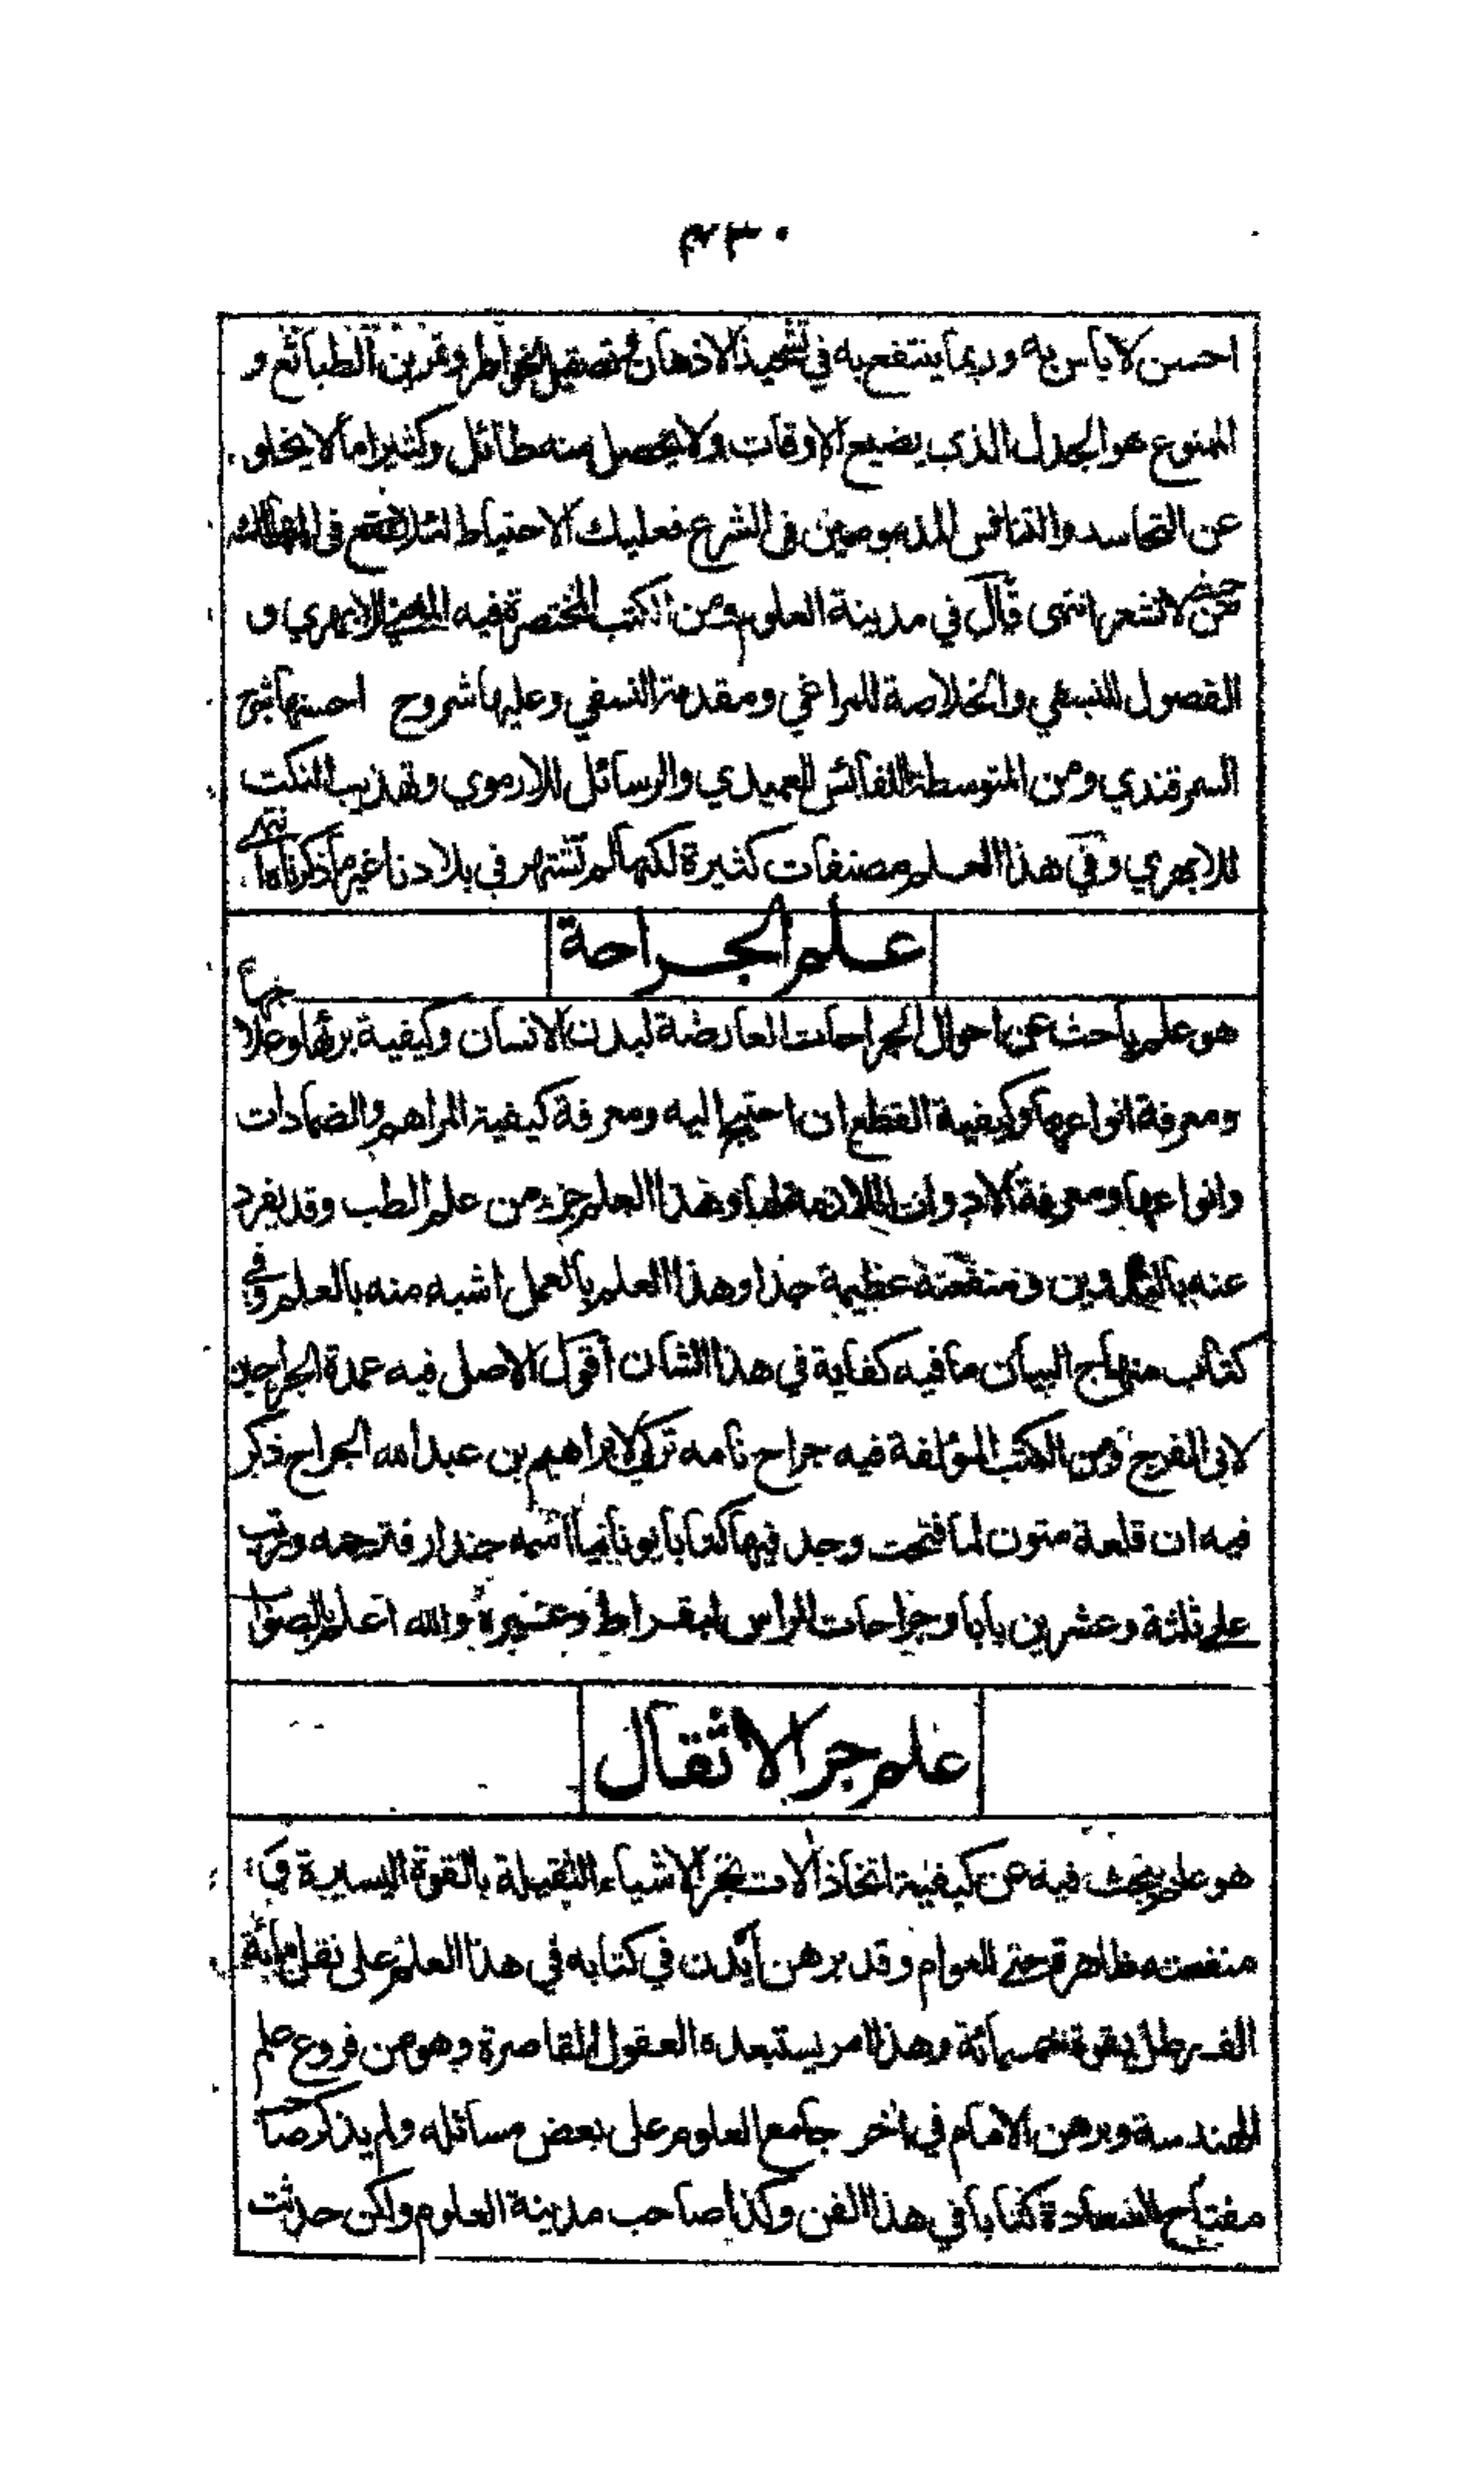 ۴۳۰
احسن لا باس به وربما ينتفع به في تشحيذ الاذهان وتصقيل الخواطر وتمرين الطبائع و
الممنوع هو الجدل الذي يضيع الاوقات ولا يحصل منه طائل وكثيرا ما لا يخلو
عن التحاسد والتنافس المذمومين في الشرع فعليك الاحتياط لئلا تقع في المهالك
من حيث لا تشعر انتهى قال في مدينة العلوم ومن الكتب المختصرة فيه المغني للابهري و
الفصول للنسفي والخلاصة للمراغي ومقدمة النسفي وعليها شروح احسنها شرح
السمرقندي ومن المتوسطة النفائس للعميدي والرسائل للارموي وتهذيب النكت
للابهري وفي هذا العلم مصنفات كثيرة لكنها لم تشتهر في بلادنا غير ما ذكرناه انتهى
علم الجراحة
هو علم باحث عن احوال الجراحات العارضة لبدن الانسان وكيفية برئها وعلاجها
ومعرفة انواعها وكيفية القطع ان احتيج اليه ومعرفة كيفية المراهم والضمادات
وانواعها ومعرفة الادوات اللازمة لها وهذا العلم جزء من علم الطب وقد يفرد
عنه بالتدوين ومنفعته عظيمة جدا وهذا العلم بالعمل اشبه منه بالعلم وفي
كتاب منهاج البيان ما فيه كفاية في هذا الشان اقول الاصل فيه عمدة الجراحين
لابي الفرج ومن الكتب المؤلفة فيه جراح نامه تركي لابراهيم بن عبد الله الجراح ذكر
فيه ان قلعة متون لما فتحت وجد فيها كتابا يونانيا اسمه جندار فترجمه ورتب
على ثلثة وعشرين بابا وجراحات الراس لبقراط وغيره والله اعلم بالصواب
علم جر الاثقال
هو علم يبحث فيه عن كيفية اتخاذ آلات تجر الاشياء الثقيلة بالقوة اليسيرة و
منفعته ظاهرة حتى للعوام وقد برهن ايدن في كتابه في هذا العلم على نقل مائة
الف رطل بقوة خمسمائة وهذا امر يستبعده العقول القاصرة وهو من فروع علم
الهندسة وبرهن الامام في اخر جامع العلوم على بعض مسائله ولم يذكر صاحب
مفتاح السعادة كتابا في هذا الفن وكذا صاحب مدينة العلوم ولكن حدثت